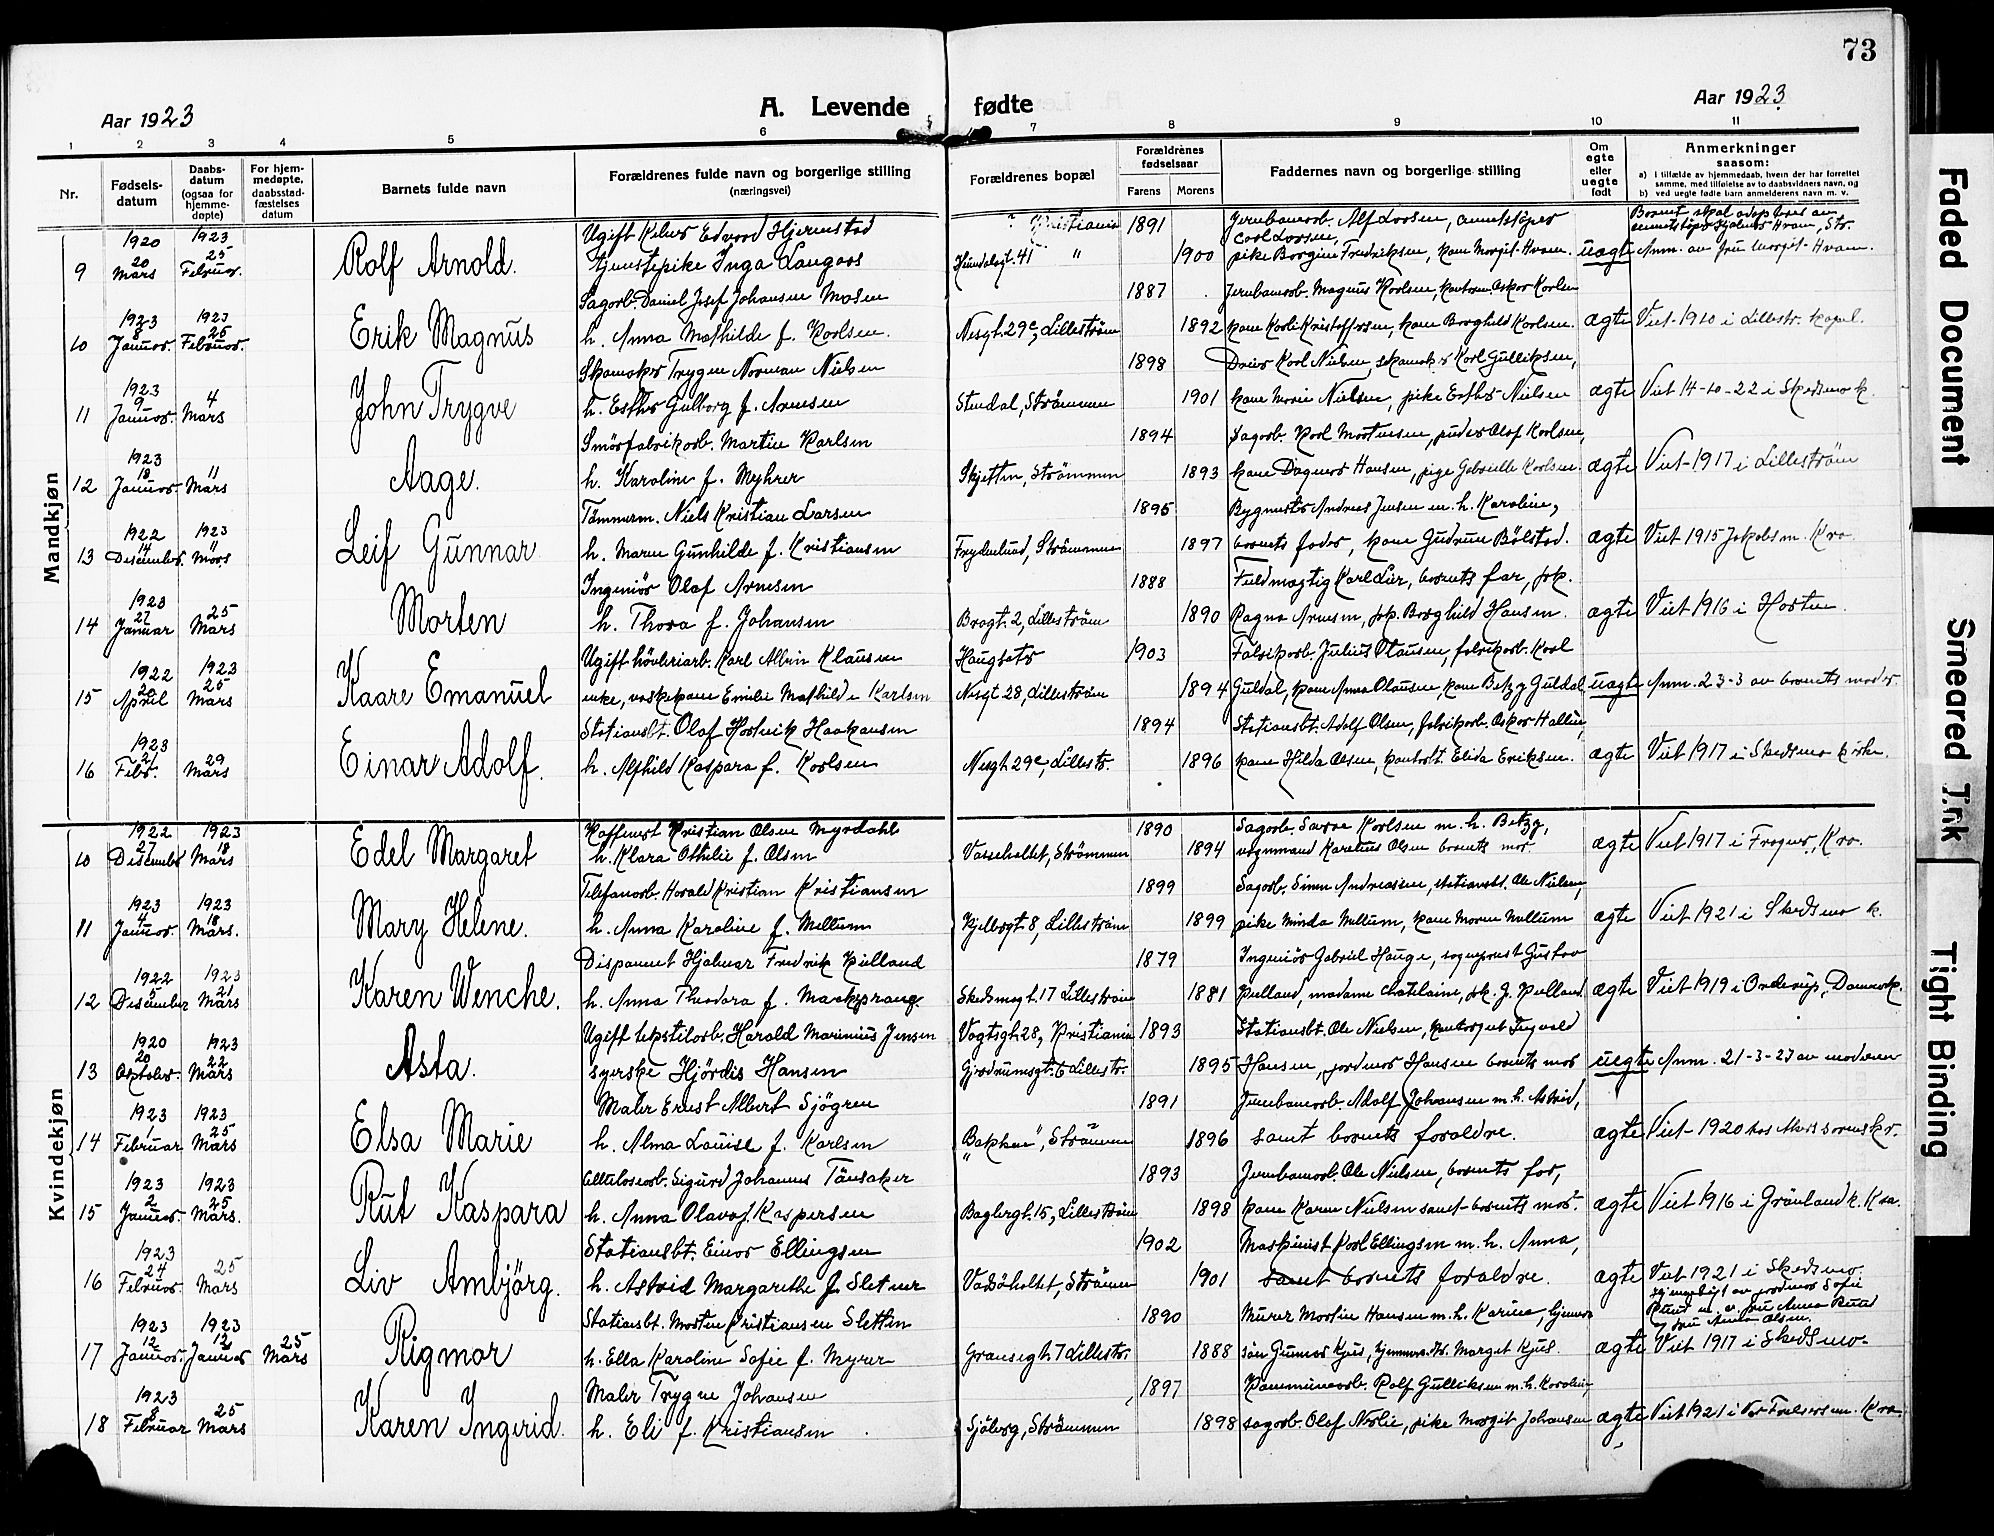 73
Aar 1923
A. Levende fødte
Aar 1923
1 2 3 4 5 6 7 8 9 10 11
Nr.
Fødsels-datum
Daabs-datum (ogsaa for hjemme-døpte)
For hjem-medøpte, daabsstad-fæstelses datum
Barnets fulde navn
Forældrenes fulde navn og borgerlige stilling (næringsvei)
Forældrenes bopæl
Forældrenes fødselsaar
Farens Morens
Faddernes navn og borgerlige stilling
Om egte eller uegte født
Anmerkninger saasom:
a) i tilfælde av hjemmedaab, hvem der har forrettet samme, med tilføielse av to daabsvidners navn, og
b) ved uegte fødte barn anmelderens navn m. v.
Mandkjøn
1920 1923 Ugift Edvard Hjermstad Kristiania 1891 Jernbanearb. Alf Larsen,
9 20 Mars 25 Februar. Rolf Arnold. tjenestepike Inga Langaas 41 " 1900 pike Borgine Fredriksen, kone Margit Hvam. uægte Anm. av fru Margit Hvam.
Sagarb. Daniel Josef Johansen Mosen 1887 Jernbanearb. Magnus Karlsen,
10 1923 8 Januar. 1923 25 Februar. Erik Magnus h. Anna Mathilde f. Karlsen. Nesgt. 29c, Lilleström 1892 kone Borghild Karlsen. ægte Viet 1910 i Lillestr. kapel.
Skomaker Trygve Norman Nielsen 1898 Karl Nielsen, skomaker Karl Gulliksen,
11 1923 9 Januar. 4 Mars John Trygve h. Esther Gulborg f. Arnesen Stendal, Strömmen 1901 kone Marie Nielsen, pike Esther Nielsen ægte Viet 14-10-22 i Skedsmo k.
Smörfabrikarb. Martin Karlsen 1894 Sagarb. Karl Martinsen, Olaf Karlsen,
12 1923 18 Januar. 11 Mars Aage. h. Karoline f. Myhrer Skjetten, Strömmen 1893 kone Dagmar Hansen, pige Gabrielle Karlsen. ægte Viet 1917 i Lilleström
Tömmerm. Niels Kristian Larsen 1895 Bygmester Andreas Jensen m. h. Karoline,
13 1922 14 Desember. 1923 11 Mars Leif Gunnar h. Maren Gunhilde f. Kristiansen Frydenlund, Strömmen 1897 barnets fader, kone Gudrun Bölstad. ægte Viet 1915 Jakobs m. Kra.
Ingeniör Olaf Arnesen 1888 Fuldmægtig Karl Lier, barnets far, frk.
14 1923 27 Januar 25 Mars Morten h. Thora f. Johansen Brogt. 2, Lilleström 1890 Ragna Arnesen, frk. Borghild Hansen. ægte Viet 1916 i Horten
Ugift hövleriarb. Karl Albin Klausen Haugsete 1903 Fabrikarb. Julius Olausen, fabrikarb. Karl
15 1922 April 1923 25 Mars Kaare Emanuel enke, vaskekone Emilie Mathilde Karlsen Nesgt. 28, Lilleström 1894 Guldal, kone Anna Olausen, kone Betzy Guldal uægte Anm. 23-3 av barnets moder.
Stationsbt. Olaf Haakansen 1894 Stationsbt. Adolf Olsen, fabrikarb. Oskar Hallin,
16 1923 2 Febr. 29 Mars Einar Adolf. h. Alfhild Kaspara f. Karlsen Nesgt. 29c, Lillestr. 1896 kone Hilda Olsen, kontorbt. Elida Eriksen. ægte Viet 1917 i Skedsmo kirke.
Kvindekjøn
1922 1923 Kristian Olsen Myrdahl 1890 Sagarb. Karlsen m. h. Betzy,
10 27 Desember 18 Mars Edel Margaret h. Klara Othilie f. Olsen Vasseholtet, Strömmen 1894 vognmand Karenius Olsen barnets mor. ægte Viet 1917 i Frogner, Kra.
Telefonarb. Harald Kristian Kristiansen 1899 Sagarb. Simen Andreassen, stationsbt. Ole Nielsen,
11 1923 4 Januar. 1923 18 Mars. Mary Helene. h. Anna Karoline f. Mellum Kjelbergt 8, Lilleström 1899 pike Minda Mellum, kone Maren Mellum ægte Viet 1921 i Skedsmo k.
Disponent Hjalmar Fredrik Kielland 1879 Ingeniör Gabriel Hauge, sogneprest Gustav
12 1922 5 Desember 1923 21 Mars Karen Wenche. h. Anna Theodora f. Mackeprang. Skedsmogt. 17 Lilleström 1881 Kielland, madame Chatelaine, frk. J. Kielland ægte Viet 1919 i Ordrup, Danmark.
Ugift tekstilarb. Harald Marinius Jensen Vogtsgt. 28, Kristiania 1893 Stationsbt. Ole Nielsen,
13 1920 20 Oktober. 1923 22 Mars Asta. syerske Hjördis Hansen Gjerdrumsgt. 6 Lillestr. 1895 Hansen, jordmor Hansen barnets mor uegte Anm. 21-3-23 av moderen
Maler Ernst Albert Sjögren 1891 Jernbanearb. Adolf Johansen m. h. Astrid,
14 1923 1 Februar 1923 25 Mars Elsa Marie h. Alma Louise f. Karlsen "Bakken", Strömmen 1896 samt barnets foraldre. ægte Viet 1920 hos sorenskr.
Sigurd Johannes Tänsaker 1893 Jernbanearb. Ole Nielsen, barnets far,
15 1923 2 Januar. 1923 25 Mars. Rut Kaspara h. Anna Olava f. Kaspersen Baglergt. 15, Lilleström 1898 kone Karen Nielsen samt barnets mor. ægte Viet 1916 i Grönland k. Kra.
Stationsbt. Einar Ellingsen 1902 Maskinist Karl Ellingsen m. h. Anna,
16 1923 24 Februar. 25 Mars Liv Ambjörg. h. Astrid Margarethe f. Sletner Strömmen 1901 samt barnets foraldre. ægte Viet 1921 i Skedsmo.
Stationsbt. Morten Kristiansen Sletten 1890 Murer Martin Hansen m. h. Karine, av jordmor Sofie Ruud fru Anna Ruud fru Anna Olsen.
17 1923 12 Januar. 1923 12 Januar 25 Mars Rigmor h. Ella Karoline Sofie f. Myrer Gransegt. 7 Lillestr. 1888 Gunnar Kjus, Margit Kjus. ægte Viet 1917 i Skedsmo.
Maler Trygve Johansen 1897 Kommunearb. Rolf Gulliksen m. h. Karoline,
18 1923 8 Februar 25 Mars Karen Ingerid. h. Eli f. Kristiansen Sjöberg, Strömmen 1898 sagarb. Olaf Nerlie, pike Margit Johansen ægte Viet 1921 i Vor Frelsers m. Kra
Faded Document
Smeared Ink
Tight Binding